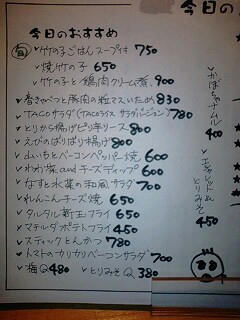 今日のおすすめ
旬
竹の子ごはん スープ付 750
焼竹の子 650
竹の子と鶏肉クリーム煮 900
春きゃべつと豚肉の粒マスいため 830
TACOサラダ(TACOライス サラダバージョン) 780
とりから揚げピリ辛ソース 800
えびのぱりぱり揚げ 800
山いもとベーコンペッパー焼 600
わかさ and チーズディップ 600
なすと水菜の和風サラダ 700
れんこんチーズ焼 650
タルタル新玉フライ 650
アボカドポテトフライ 450
スティックとんかつ 780
トマトのカリカリベーコンサラダ 700
梅Q 480
とりみそQ 380
今日の
かぼちゃナムル 400
とりみそ 450